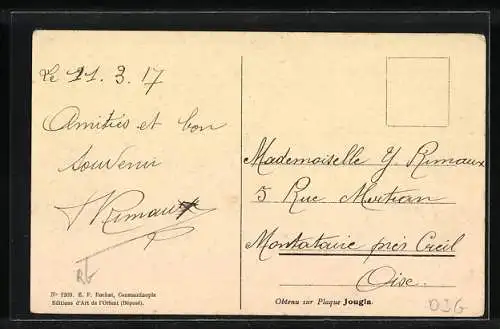 Le 21. 3. 17
Amitiés et bon
souvenir
Rimaux
Mademoiselle Y. Rimaux
5 Rue
Montataire près Creil
Oise.
E. F. Rochat, Constantinople
Editions d'Art de l'Orient (Déposé).
Obtenu sur Plaque Jougla.